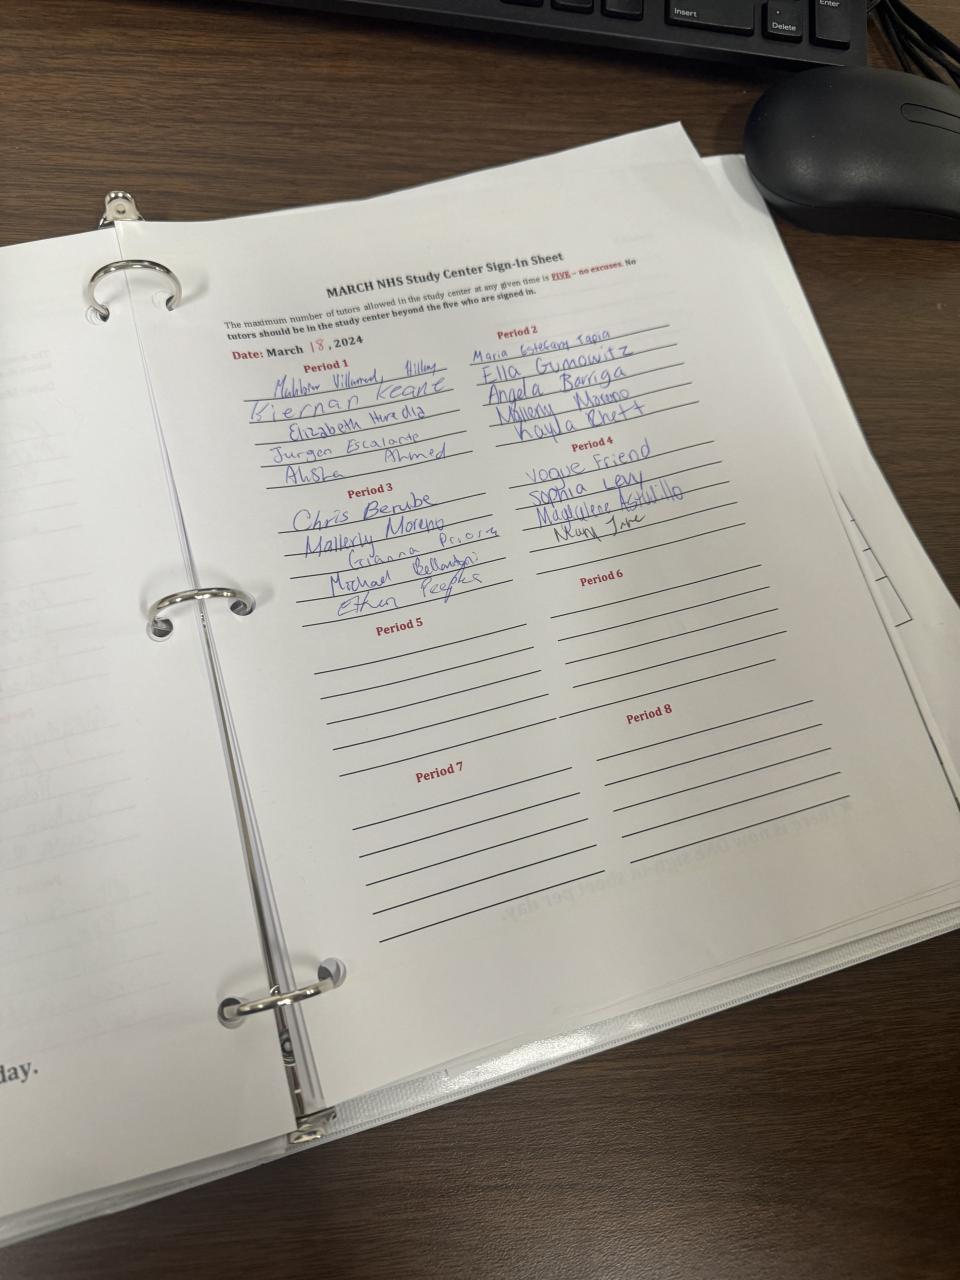 Insert
Delete
Enter
MARCH NHS Study Center Sign-In Sheet
The maximum number of tutors allowed in the study center at any given time is FIVE – no excuses. No
tutors should be in the study center beyond the five who are signed in.
Date: March 18, 2024
Period 1
Kiernan Keane
Elizabeth Heredia
Jurgen Escalante
Ahmed
Period 2
Maria Estefany Tapia
Ella Gunowitz
Angela Barriga
Mallerly Moreno
Kayla Rhett
Period 3
Chris Berube
Mallerly Moreno
Gianna
Michael
Ethan Peeples
Period 4
Vogue Friend
Sophia Levy
Magdalene Astudillo
Period 5
Period 6
Period 7
Period 8
day.
there is now ONE sign-in sheet per day.